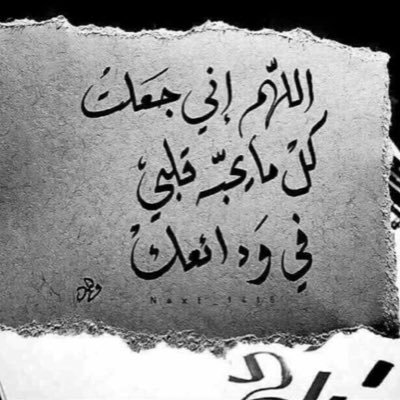 اللهم إني جعلتُ
كلّ ما يحبّه قلبي
في وَدائعكْ
Next_1416